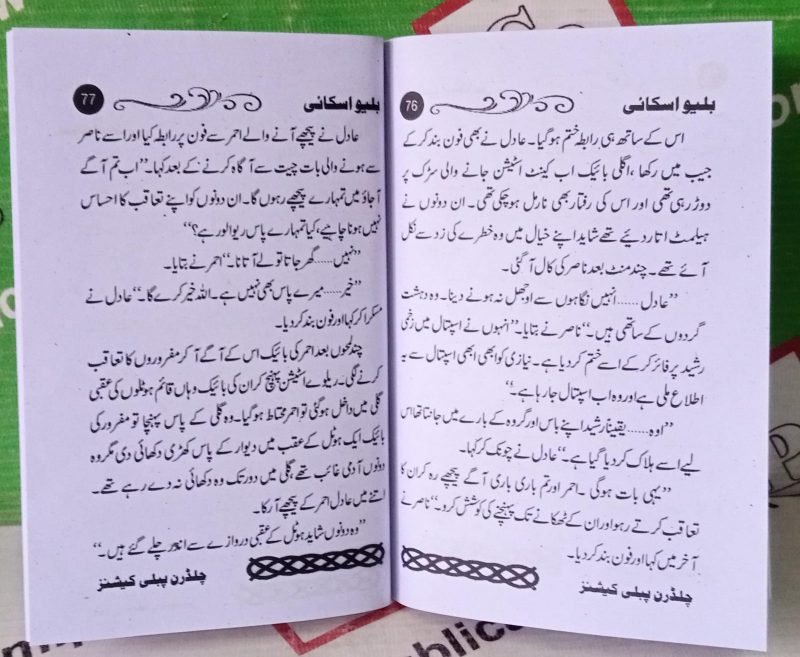 بلیو اسکائی
76
اس کے ساتھ ہی رابطہ ختم ہوگیا۔ عادل نے بھی فون بند کر کے
جیب میں رکھا، اگلی بائیک اب کینٹ اسٹیشن جانے والی سڑک پر
دوڑ رہی تھی اور اس کی رفتار بھی نارمل ہوچکی تھی۔ ان دونوں نے
ہیلمٹ اتار دیئے تھے شاید اپنے خیال میں وہ خطرے کی زد سے نکل
آئے تھے۔ چند منٹ بعد ناصر کی کال آگئی۔
’’عادل ...... انہیں نگاہوں سے اوجھل نہ ہونے دینا۔ وہ دہشت
گردوں کے ساتھی ہیں۔‘‘ ناصر نے بتایا۔ ’’انہوں نے اسپتال میں زخمی
رشید پر فائر کر کے اسے ختم کردیا ہے۔ نیازی کو ابھی ابھی اسپتال سے یہ
اطلاع ملی ہے اور وہ اب اسپتال جارہا ہے۔‘‘
’’اوہ ...... یقینا رشید اپنے باس اور گروہ کے بارے میں جانتا تھا اس
لیے اسے ہلاک کردیا گیا ہے۔‘‘ عادل نے چونک کر کہا۔
’’یہی بات ہوگی ۔ احمر اور تم باری باری آگے پیچھے رہ کر ان کا
تعاقب کرتے رہو اور ان کے ٹھکانے تک پہنچنے کی کوشش کرو۔‘‘ ناصر نے
آخر میں کہا اور فون بند کردیا۔
چلڈرن پبلی کیشنز
بلیو اسکائی
77
عادل نے پیچھے آنے والے احمر سے فون پر رابطہ کیا اور اسے ناصر
سے ہونے والی بات چیت سے آگاہ کرنے کے بعد کہا۔ ’’اب تم آگے
آجاؤ میں تمہارے پیچھے رہوں گا۔ ان دونوں کو اپنے تعاقب کا احساس
نہیں ہونا چاہیے، کیا تمہارے پاس ریوالور ہے؟‘‘
’’نہیں ..... گھر جاتا تو لے آتا نا۔‘‘ احمر نے بتایا۔
’’خیر ..... میرے پاس بھی نہیں ہے۔ اللہ خیر کرے گا۔‘‘ عادل نے
مسکرا کر کہا اور فون بند کردیا۔
چند لمحوں بعد احمر کی بائیک اس کے آگے آکر مفروروں کا تعاقب
کرنے لگی۔ ریلوے اسٹیشن پہنچ کر ان کی بائیک وہاں قائم ہوٹلوں کی عقبی
گلی میں داخل ہوگئی تو احمر محتاط ہوگیا۔ وہ گلی کے پاس پہنچا تو مفرور کی
بائیک ایک ہوٹل کے عقب میں دیوار کے پاس کھڑی دکھائی دی مگر وہ
دونوں آدمی غائب تھے، گلی میں دور تک وہ دکھائی نہ دے رہے تھے۔
اتنے میں عادل احمر کے پیچھے آرکا۔
’’وہ دونوں شاید ہوٹل کے عقبی دروازے سے اندر چلے گئے ہیں۔‘‘
چلڈرن پبلی کیشنز